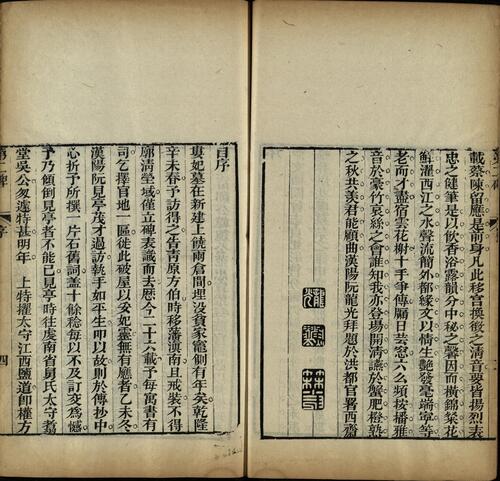 載蔡陳留應是前身凡此移宮換徵之清音要皆揚烈表
忠之健筆是以飲香浴露韻分中秘之馨因而橫錦粲花
鮮濯西江之水聲流簡外都緣文以情生艷發毫端寧等
老而才盡宿雲花榭十手爭傳屬日雲窓六么頻按播雅
音於豪竹哀絲之會誰知我亦登場開清讌於蟹肥橙熟
之秋共羨君能顧曲漢陽阮龍光拜題於洪都官署西齋
自序
婁妃墓在新建上饒兩倉間埋沒貧家竈側有年矣乾隆
辛未春予訪得之告青原方伯時移藩滇南且戒裝不得
廓清塋域僅立碑表識而去懸今二十六載予每寓書有
司乞擇官地一區徙此破屋以安妃靈無有應者乙未冬
漢陽阮見亭茂才過訪執手如平生叩以故則於傳抄中
心折予所撰一片石舊詞蓋十餘稔每以不及訂交爲憾
予乃傾倒見亭者不能已見亭時往虔南省舅氏太守
堂吳公匆遽特甚明年 上特擢太守江西鹽道卽權方
第二碑
序
四